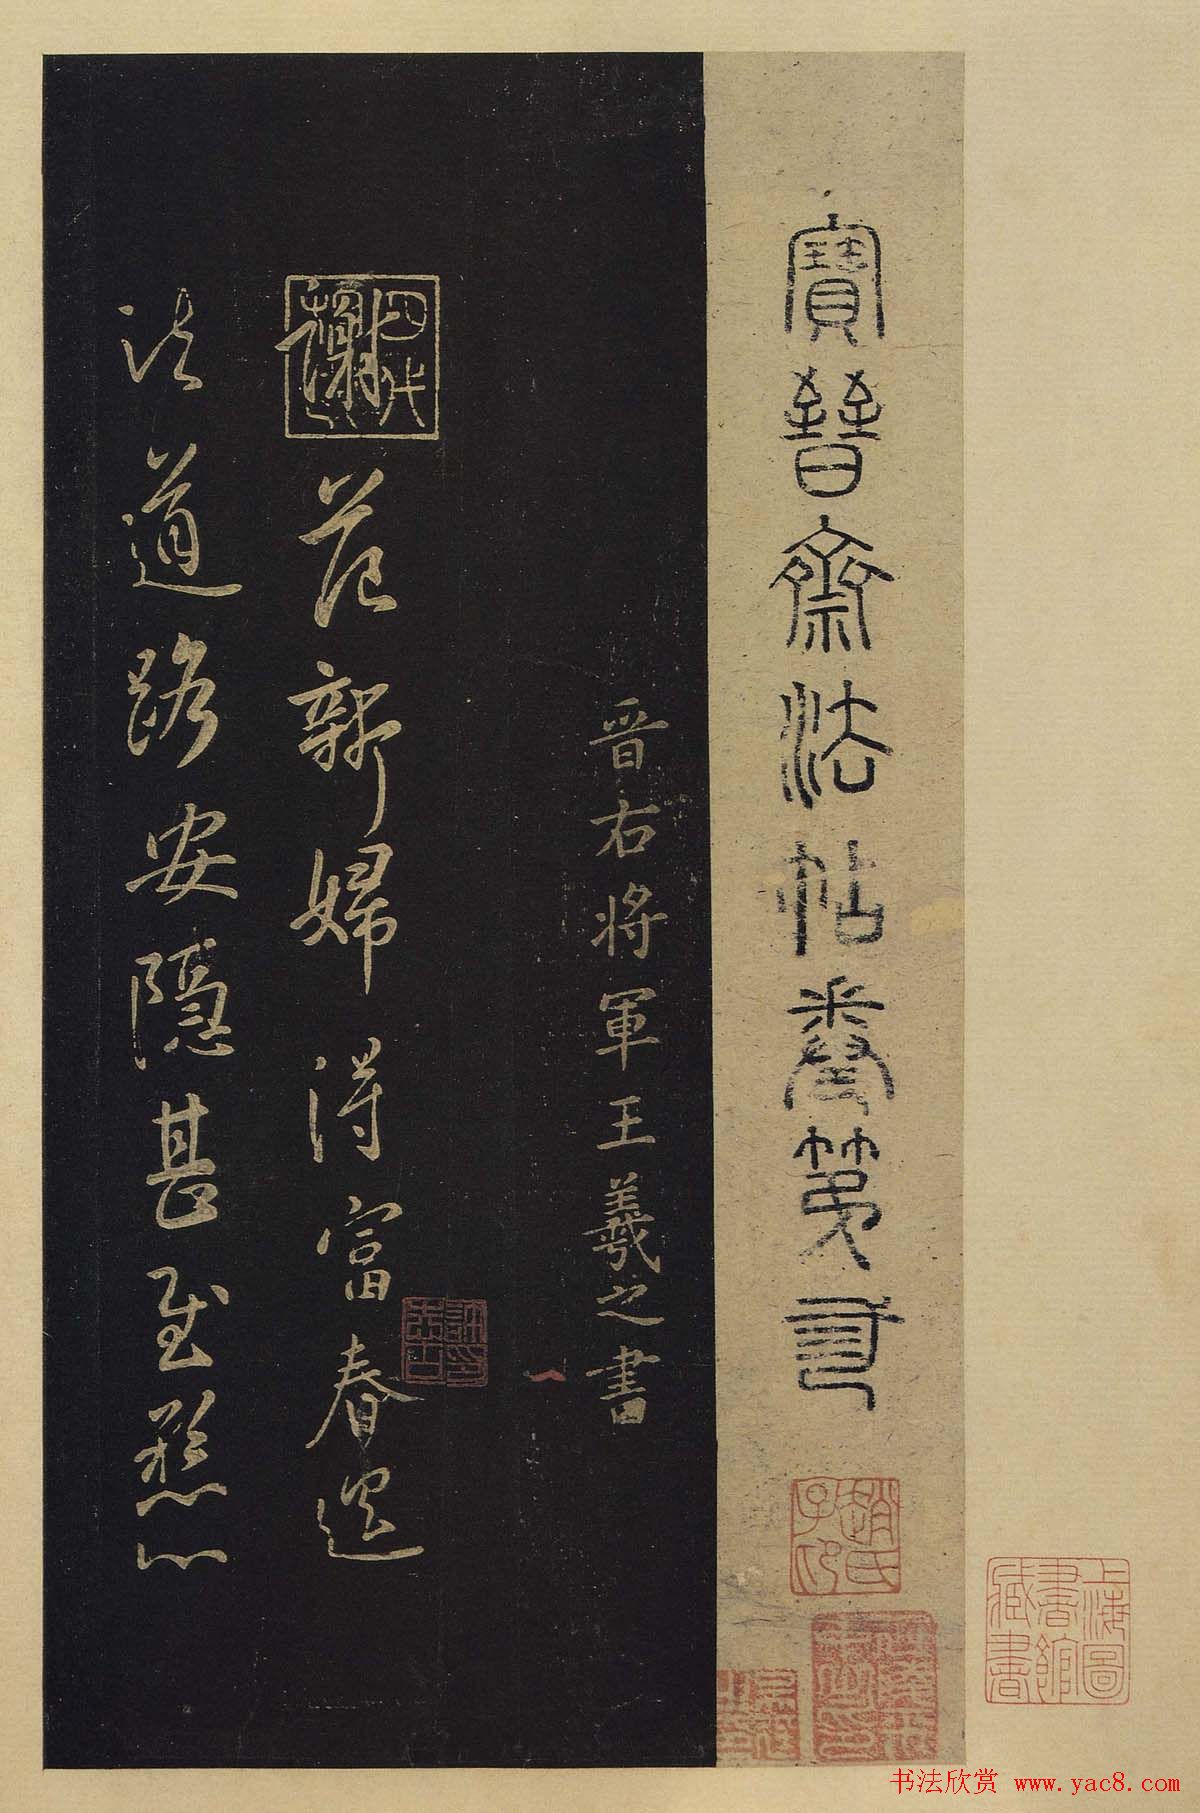 寶晉齋法帖卷第三
晉右將軍王羲之書
謝范新婦得富春還
諸道路安隱甚慰懸心
四代
趙氏子印
上海圖書館藏書
书法欣赏 www.yac8.com